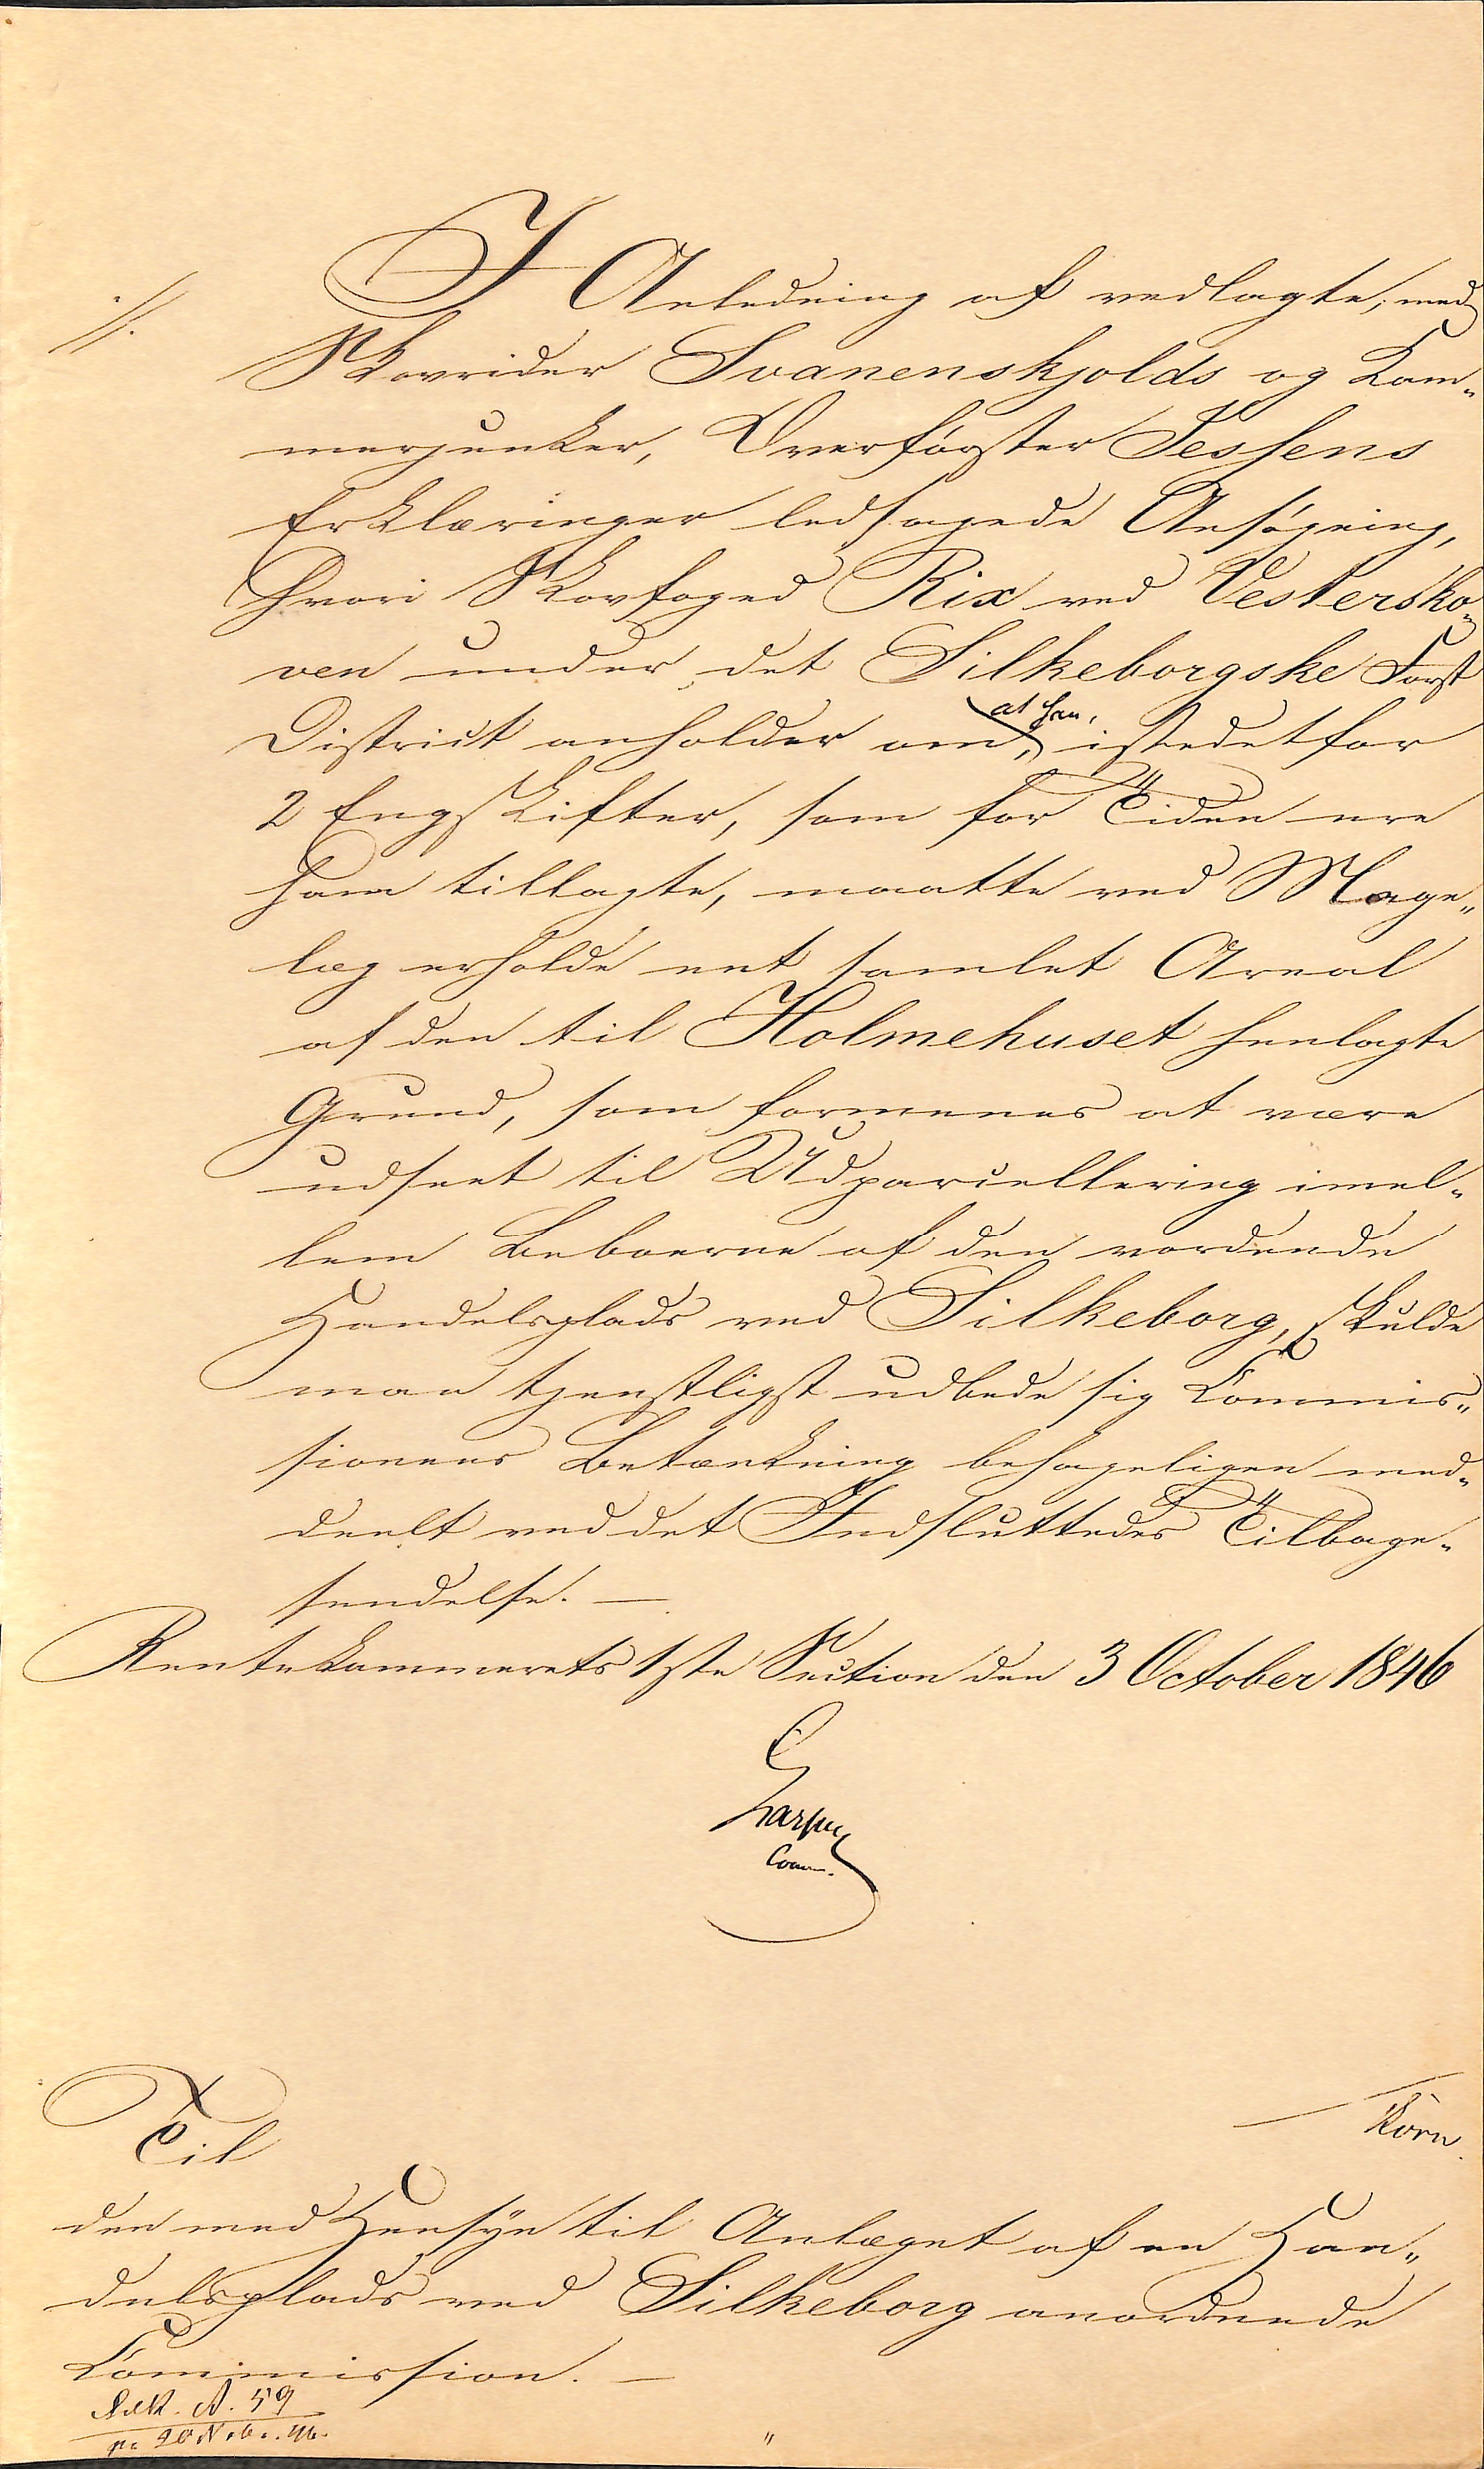 I Anledning af vedlagte, med
Skovrider Svanenskjolds og Kam-
merjunker, Overförster Jessens
Erklæringer ledsagede Ansögning,
hvori Skovfoged Rix ved Vestersko-
ven under det Silkeborgske Forst
District anholder om, at han, istedetfor
2 Engskifter, som for Tiden ere
ham tillagte, maatte ved Mage-
læg erholde eet samlet Areal
af den til Holmehuset henlagte
Grund, som formenes at være
udseet til Udparcellering imel-
lem Beboerne af den vordende
Handelsplads ved Silkeborg, skulde
man tjenstligst udbede sig Commis-
sionens Betænkning behageligen med-
deelt ved det Indsluttedes Tilbage-
sendelse. —
Rentekammerets 1ste Section den 3 October 1846
Comm.
Körn.
Til
den med Hensyn til Anlæget af en Han-
delsplads ved Silkeborg anordnede
Commission. —
N. 59